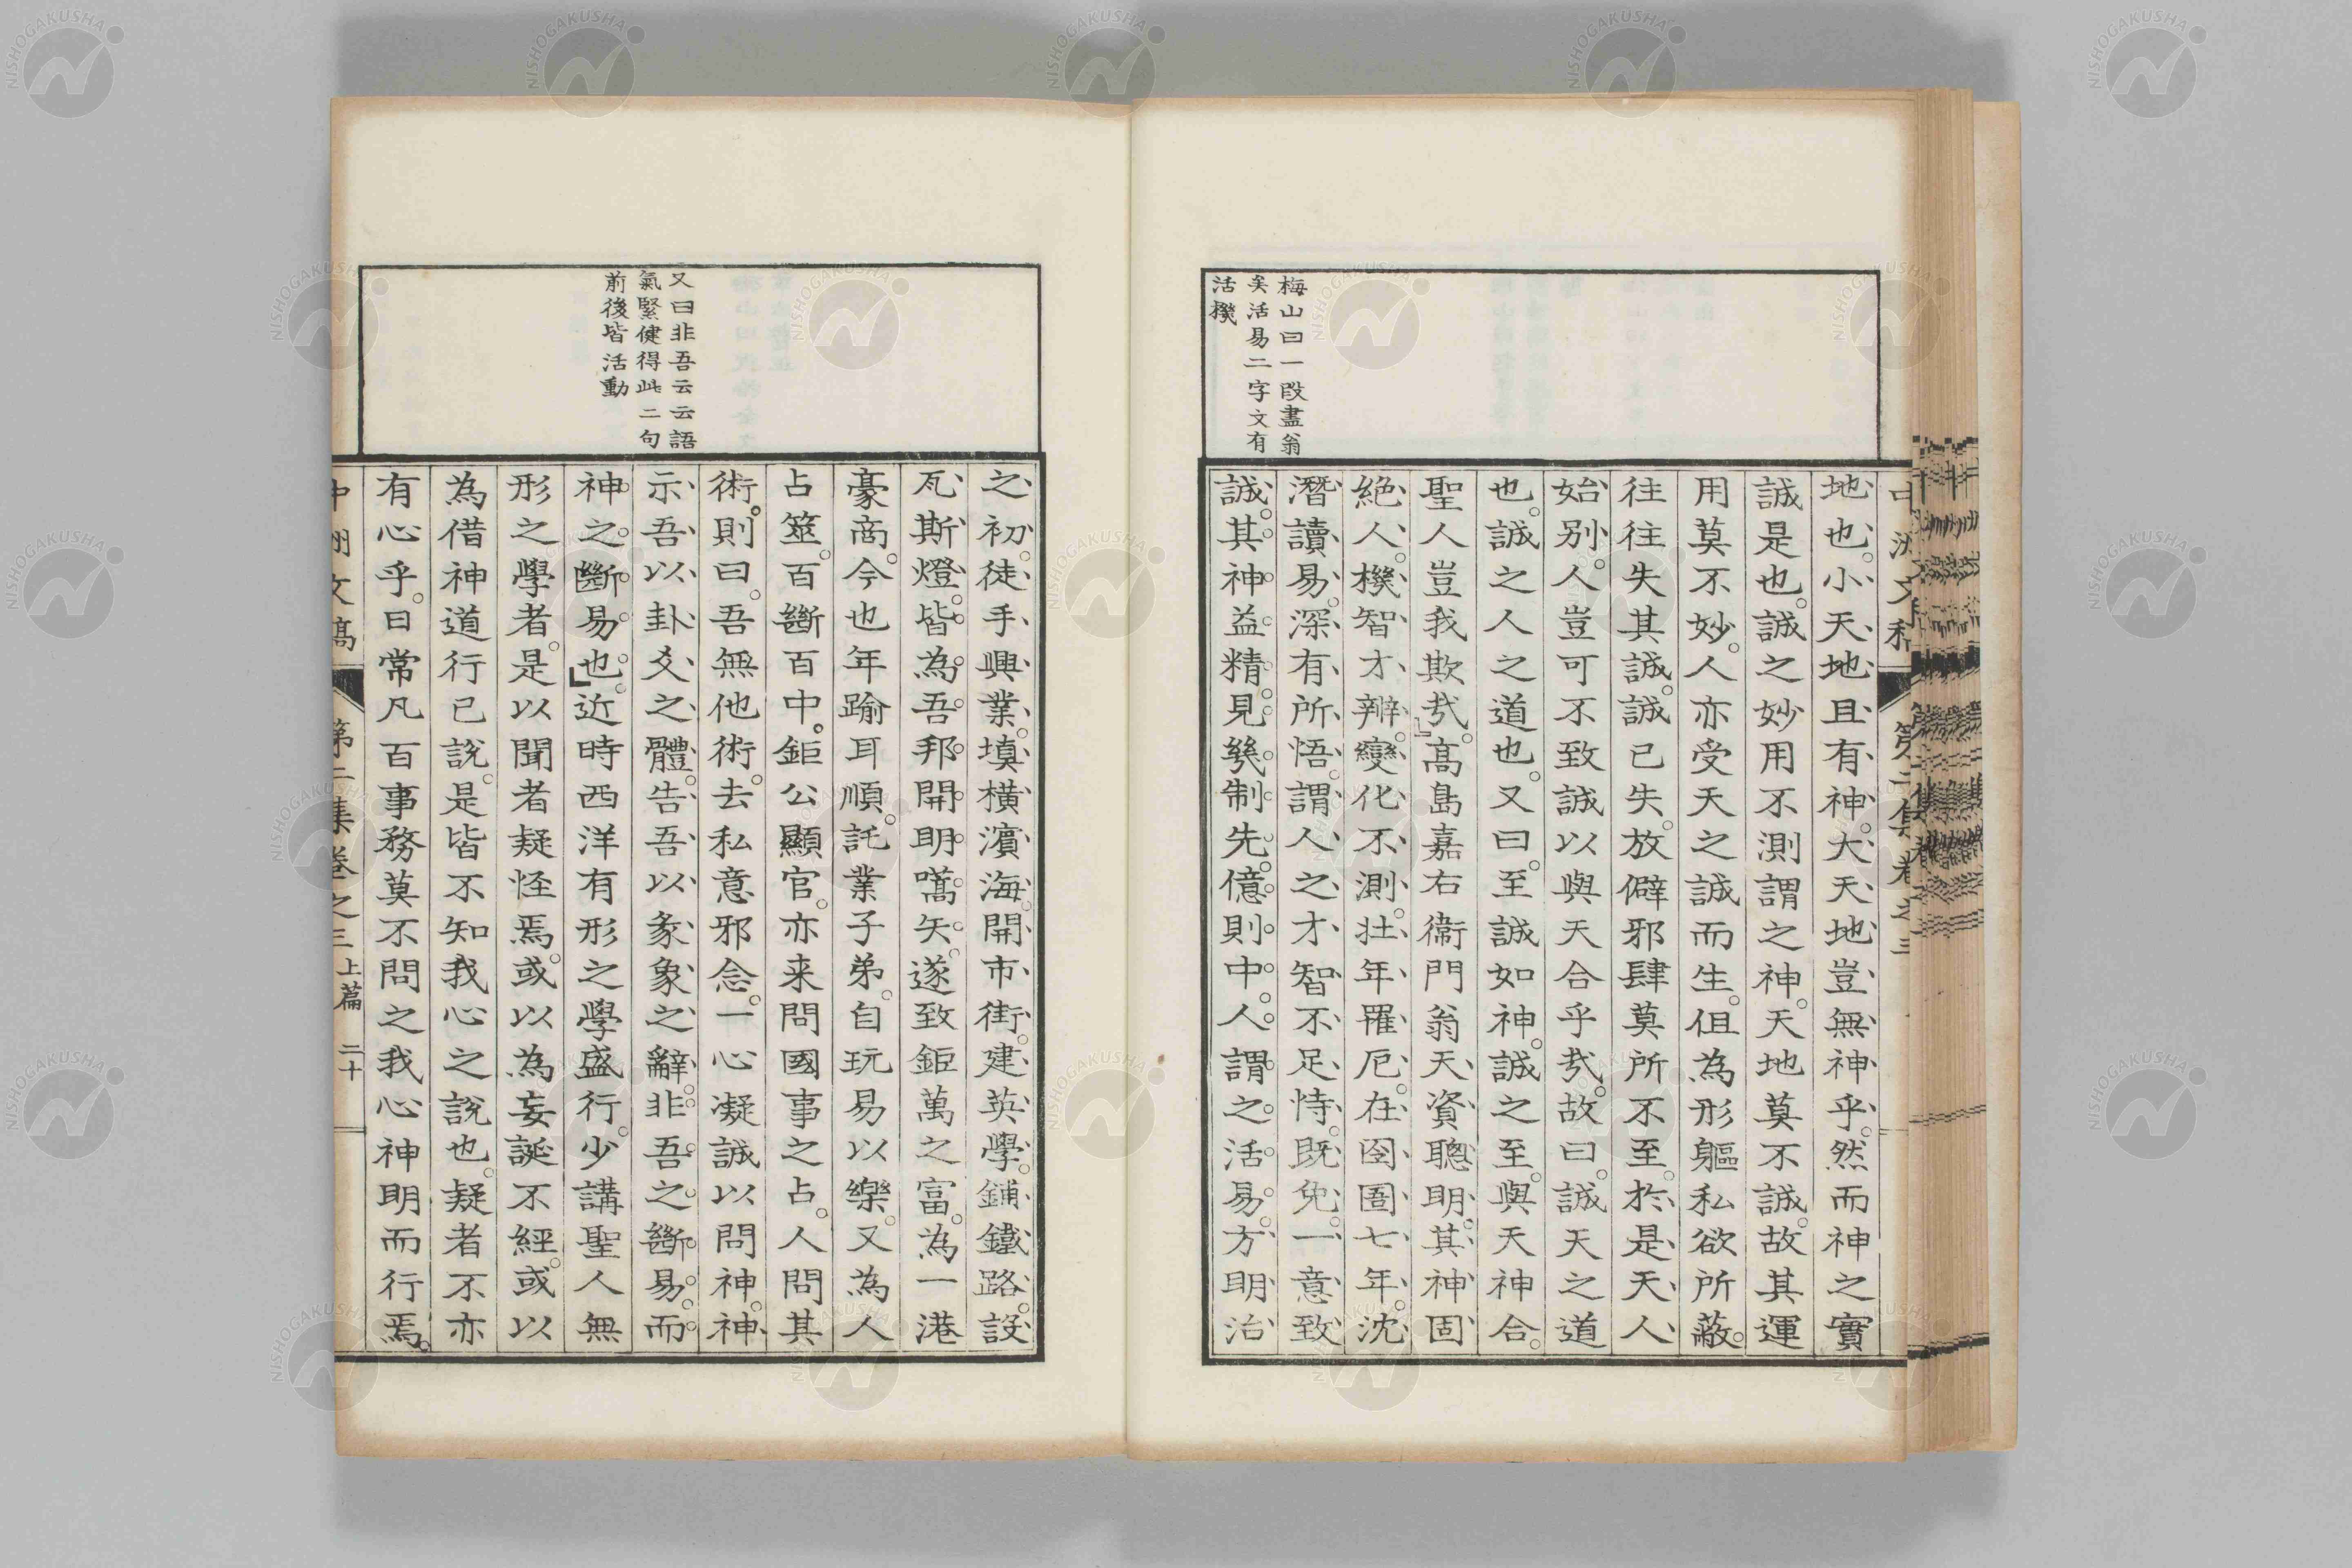 梅山曰一段盡翁
矣活易二字文有
活機
地也。小天地且有神。大天地豈無神乎。然而神之實
誠是也。誠之妙用不測謂之神。天地莫不誠。故其運
用莫不妙。人亦受天之誠而生。但為形軀私欲所蔽。
往往失其誠。誠已失。放僻邪肆莫所不至。於是天人
始別。人豈可不致誠以與天合乎哉。故曰。誠天之道
也。誠之人之道也。又曰。至誠如神。誠之至。與天神合。
聖人豈我欺哉。」高島嘉右衞門翁天資聰明。其神固
絶人。機智才辨。變化不測。壯年罹厄。在囹圄七年。沈
潛讀易。深有所悟。謂人之才智不足恃。既免。一意致
誠。其神益精。見幾制先。億則中。人謂之活易。方明治
又曰非吾云云語
氣緊健得此二句
前後皆活動
之初。徒手興業。塡橫濵海。開市街。建英學。鋪鐵路。設
瓦斯燈。皆為吾邦開明嚆矢。遂致鉅萬之富。為一港
豪商。今也年踰耳順。託業子弟。自玩易以樂。又為人
占筮。百斷百中。鉅公顯官。亦来問國事之占。人問其
術。則曰。吾無他術。去私意邪念。一心凝誠以問神。神
示吾以卦爻之體。告吾以彖象之辭。非吾之斷易。而
神之斷易也。」近時西洋有形之學盛行。少講聖人無
形之學者。是以聞者疑怪焉。或以為妄誕不經。或以
為借神道行已說。是皆不知我心之說也。疑者不亦
有心乎。日常凡百事務莫不問之我心神明而行焉。
中洲文稿 第二集卷之三 上篇 二十